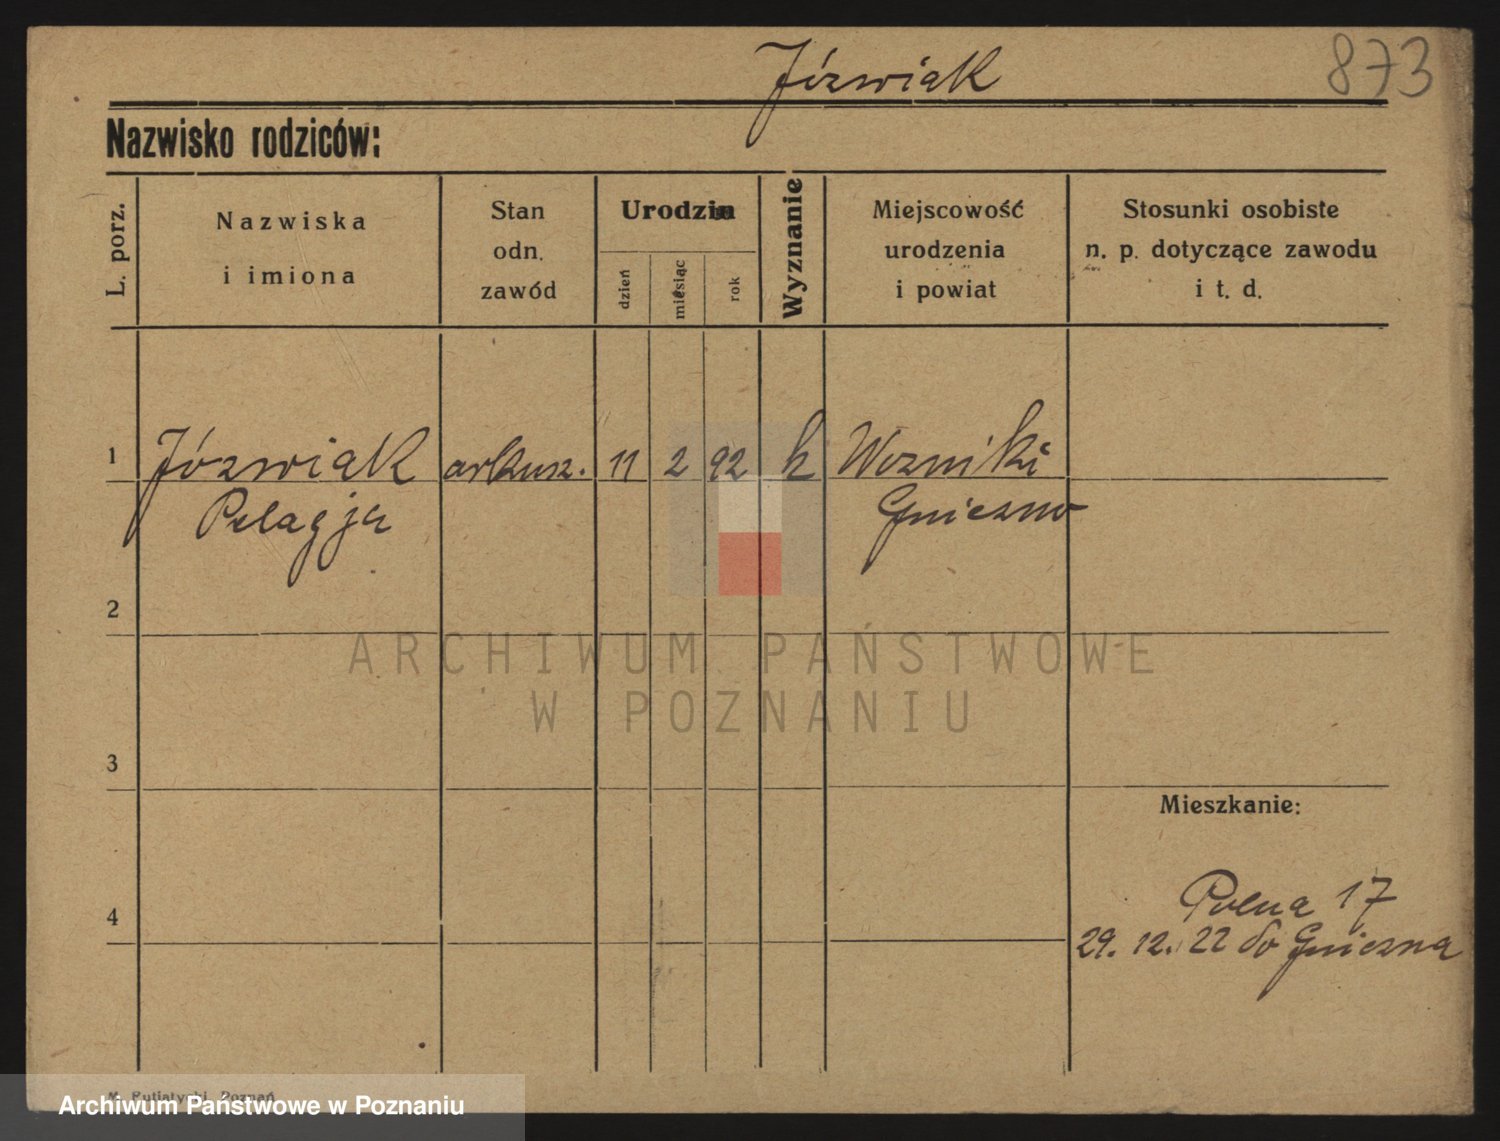 Józwiak
873
Nazwisko rodziców:
L. porz.
Nazwiska
i imiona
Stan
odn.
zawód
Urodzin
dzień
miesiąc
rok
Wyznanie
Miejscowość
urodzenia
i powiat
Stosunki osobiste
n. p. dotyczące zawodu
i t. d.
1 Józwiak arkusz. 11 2 92 k Wozniki
Pelagja Gniezno
2
ARCHIWUM PAŃSTWOWE
W POZNANIU
3
Mieszkanie:
4
Polna 17
29. 12. 22 do Gniezna
Poznań
Archiwum Państwowe w Poznaniu